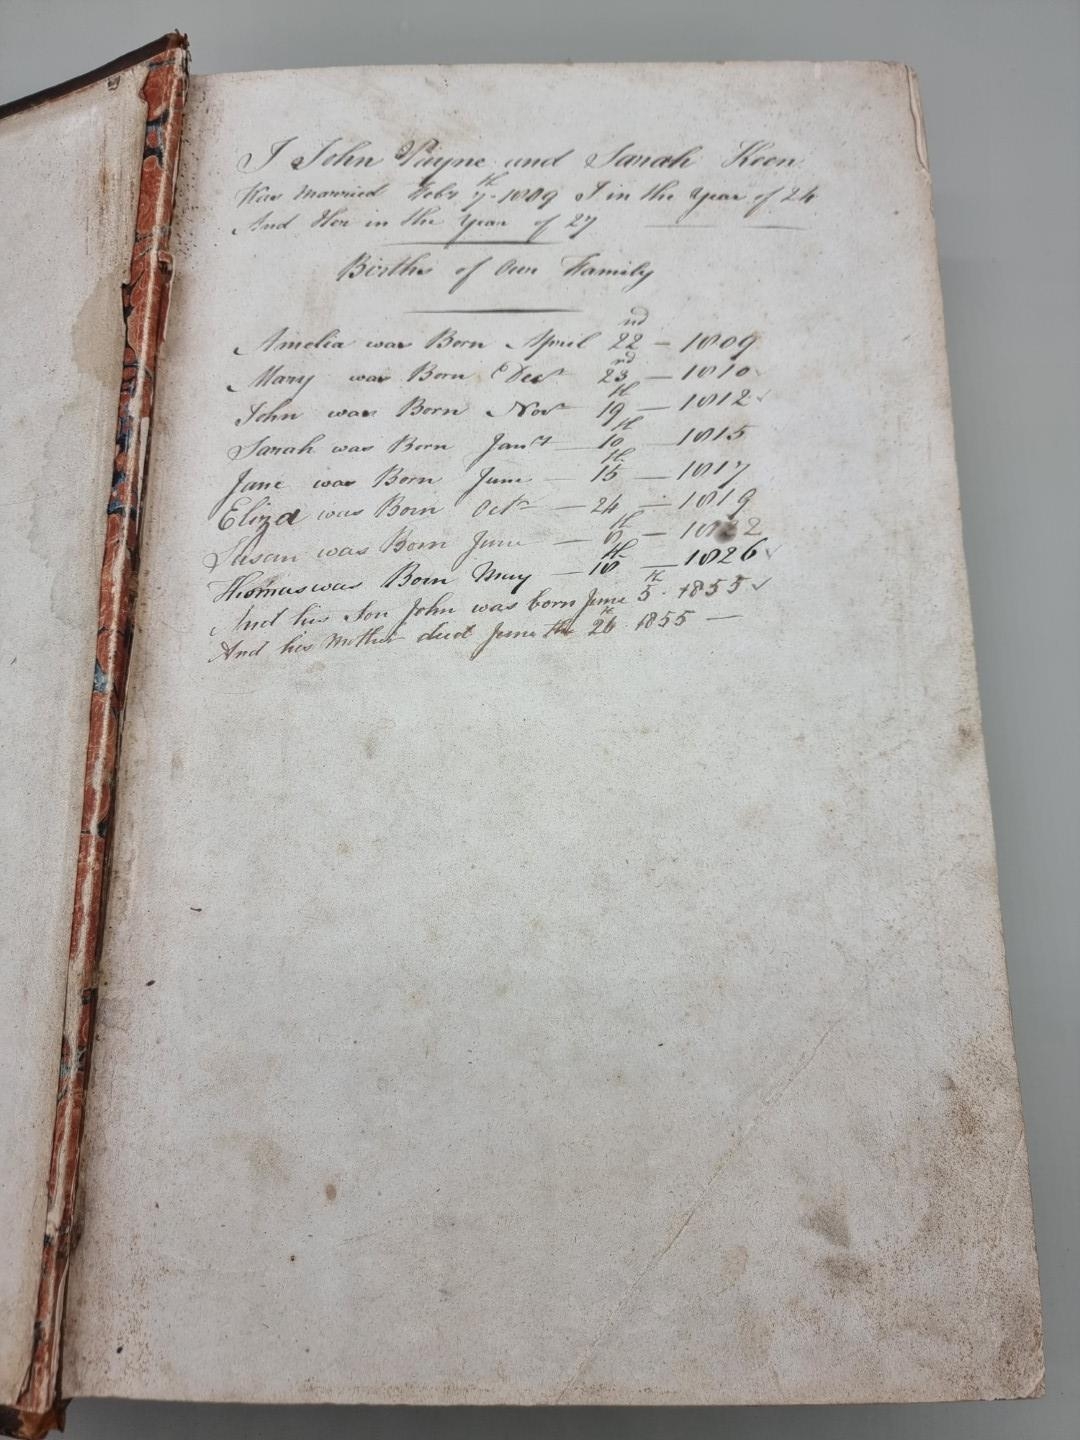 I John Payne and Sarah Keen
Was Married Febr 7th 1809 I in the Year of 24
And Her in the Year of 27
Births of Our Family
Amelia was Born April 22nd — 1809
Mary was Born Decr 23rd — 1810
John was Born Novr 19th — 1812
Sarah was Born Janry 10th — 1815
Jane was Born June — 15th — 1817
Eliza was Born Octr — 24 — 1819
Susan was Born June — th — 1822
Thomas was Born May — 18th — 1826
And his Son John was born June 5th 1855
And his Mother died June the 26th 1855 —